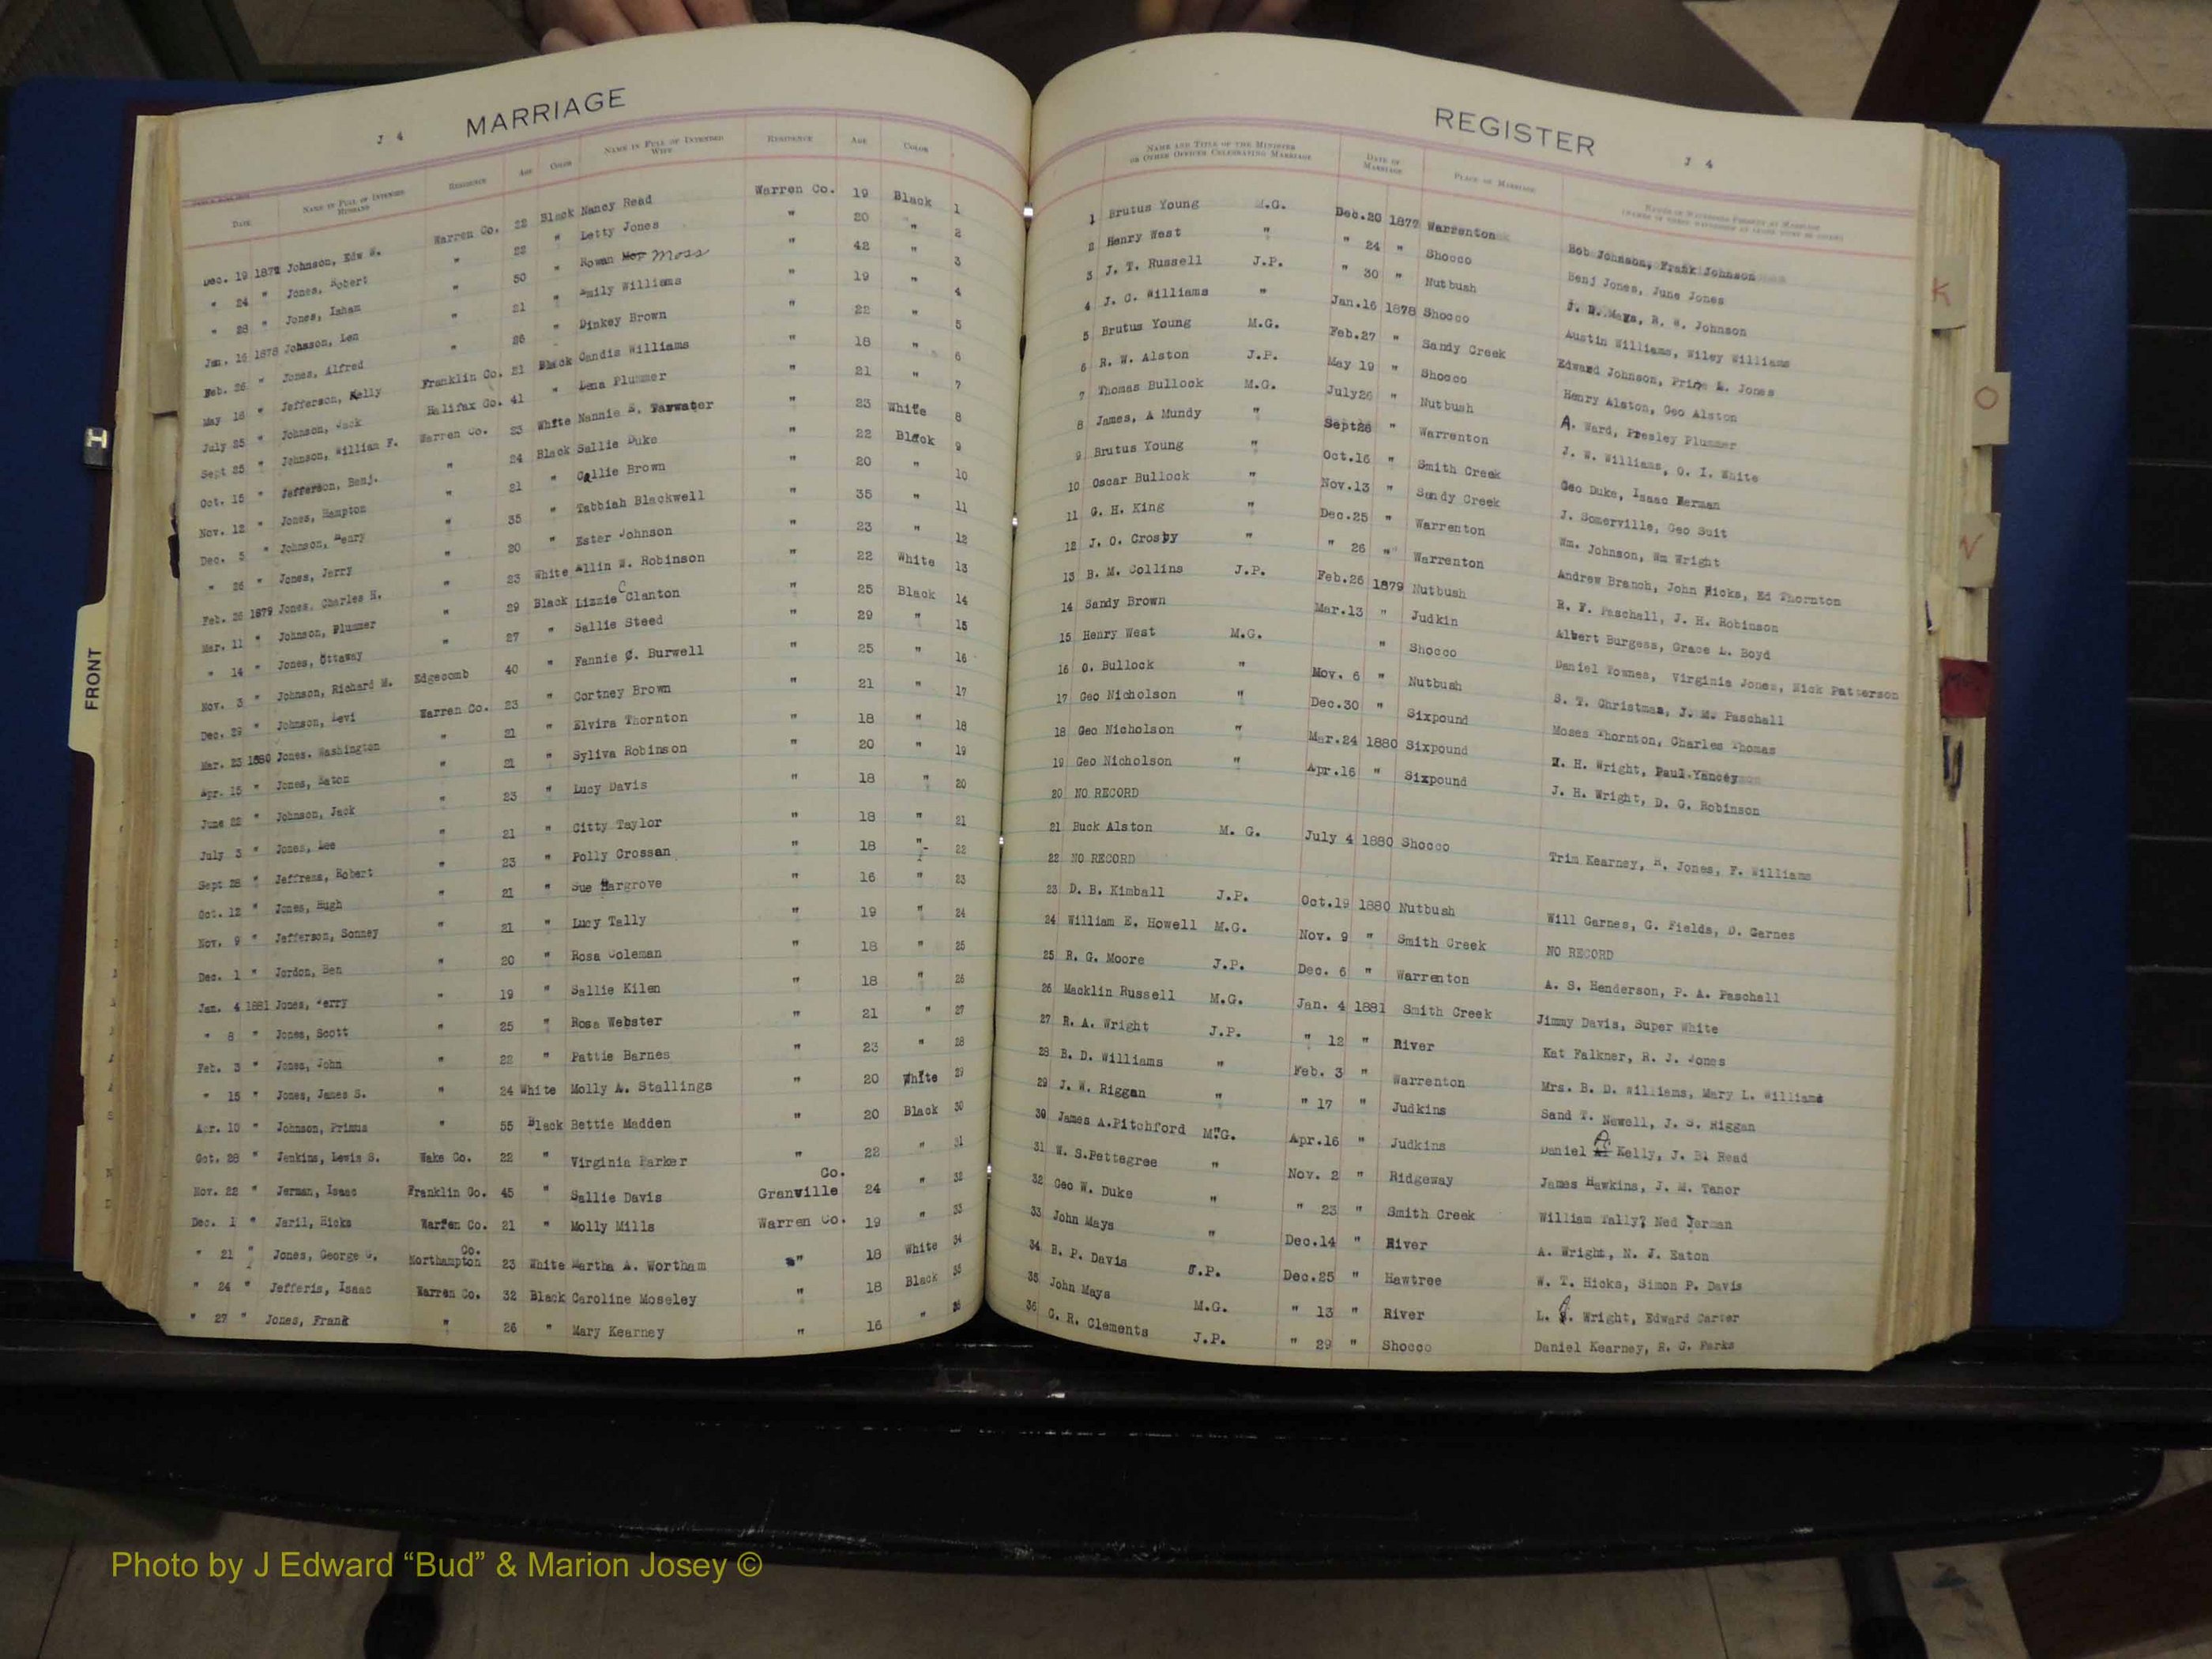 J 4 MARRIAGE
DATE NAME IN FULL OF INTENDED HUSBAND RESIDENCE AGE COLOR NAME IN FULL OF INTENDED WIFE RESIDENCE AGE COLOR
Dec. 19 1877 Johnson, Edw W. Warren Co. 22 Black Nancy Read Warren Co. 19 Black 1
" 24 " Jones, Robert " 22 " Letty Jones " 20 " 2
" 28 " Jones, Isham " 50 " Rowan Moss " 42 " 3
Jan. 16 1878 Johnson, Len " 21 " Emily Williams " 19 " 4
Feb. 26 " Jones, Alfred " 26 " Dinkey Brown " 22 " 5
May 18 " Jefferson, Kelly Franklin Co. 21 Black Candis Williams " 18 " 6
July 25 " Johnson, Jack Halifax Co. 41 " Lena Plummer " 21 " 7
Sept 25 " Johnson, William F. Warren Co. 23 White Nannie E. Yarwater " 23 White 8
Oct. 15 " Jefferson, Benj. " 24 Black Sallie Duke " 22 Black 9
Nov. 12 " Jones, Hampton " 21 " Callie Brown " 20 " 10
Dec. 5 " Johnson, Henry " 35 " Tabbiah Blackwell " 35 " 11
" 26 " Jones, Jerry " 20 " Ester Johnson " 23 " 12
Feb. 26 1879 Jones, Charles H. " 23 White Allin W. Robinson " 22 White 13
Mar. 11 " Johnson, Plummer " 29 Black Lizzie C Clanton " 25 Black 14
" 14 " Jones, Ottaway " 27 " Sallie Steed " 29 " 15
Nov. 3 " Johnson, Richard M. Edgecomb 40 " Fannie C. Burwell " 25 " 16
Dec. 29 " Johnson, Levi Warren Co. 23 " Cortney Brown " 21 " 17
Mar. 23 1880 Jones, Washington " 21 " Elvira Thornton " 18 " 18
Apr. 15 " Jones, Eaton " 21 " Syliva Robinson " 20 " 19
June 22 " Johnson, Jack " 23 " Lucy Davis " 18 " 20
July 3 " Jones, Lee " 21 " Citty Taylor " 18 " 21
Sept 28 " Jeffress, Robert " 23 " Polly Crossan " 18 " 22
Oct. 12 " Jones, Hugh " 21 " Sue Hargrove " 16 " 23
Nov. 9 " Jefferson, Sonney " 21 " Lucy Tally " 19 " 24
Dec. 1 " Jordon, Ben " 20 " Rosa Coleman " 18 " 25
Jan. 4 1881 Jones, Perry " 19 " Sallie Kilen " 18 " 26
" 8 " Jones, Scott " 25 " Rosa Webster " 21 " 27
Feb. 3 " Jones, John " 22 " Pattie Barnes " 23 " 28
" 15 " Jones, James S. " 24 White Molly A. Stallings " 20 White 29
Apr. 10 " Johnson, Primus " 55 Black Bettie Madden " 20 Black 30
Oct. 28 " Jenkins, Lewis S. Wake Co. 22 " Virginia Parker " 22 " 31
Nov. 22 " Jerman, Isaac Franklin Co. 45 " Sallie Davis Granville Co. 24 " 32
Dec. 1 " Jaril, Hicks Warren Co. 21 " Molly Mills Warren Co. 19 " 33
" 21 " Jones, George G. Northampton Co. 23 White Martha A. Wortham " 18 White 34
" 24 " Jefferis, Isaac Warren Co. 32 Black Caroline Moseley " 18 Black 35
" 27 " Jones, Frank " 26 " Mary Kearney " 16 " 36
REGISTER J 4
NAME AND TITLE OF THE MINISTER OR OTHER OFFICER CELEBRATING MARRIAGE DATE OF MARRIAGE PLACE OF MARRIAGE
1 Brutus Young M.G. Dec.20 1877 Warrenton Bob Johnson, Frank Johnson
2 Henry West " " 24 " Shocco Benj Jones, June Jones
3 J. T. Russell J.P. " 30 " Nutbush J. D. Mays, R. W. Johnson
4 J. C. Williams " Jan.16 1878 Shocco Austin Williams, Wiley Williams
5 Brutus Young M.G. Feb.27 " Sandy Creek Edward Johnson, Price L. Jones
6 R. W. Alston J.P. May 19 " Shocco Henry Alston, Geo Alston
7 Thomas Bullock M.G. July26 " Nutbush A. Ward, Presley Plummer
8 James, A Mundy " Sept26 " Warrenton J. W. Williams, O. I. White
9 Brutus Young " Oct.16 " Smith Creek Geo Duke, Isaac Herman
10 Oscar Bullock " Nov.13 " Sandy Creek J. Somerville, Geo Suit
11 G. H. King " Dec.25 " Warrenton Wm. Johnson, Wm Wright
12 J. O. Crosby " " 26 " Warrenton Andrew Branch, John Hicks, Ed Thornton
13 B. M. Collins J.P. Feb.26 1879 Nutbush R. F. Paschall, J. H. Robinson
14 Sandy Brown Mar.13 " Judkin Albert Burgess, Grace L. Boyd
15 Henry West M.G. " Shocco Daniel Townes, Virginia Jones, Nick Patterson
16 O. Bullock " Nov. 6 " Nutbush S. T. Christmas, J. M. Paschall
17 Geo Nicholson " Dec.30 " Sixpound Moses Thornton, Charles Thomas
18 Geo Nicholson " Mar.24 1880 Sixpound H. Wright, Paul Yancey
19 Geo Nicholson " Apr.16 " Sixpound J. H. Wright, D. G. Robinson
20 NO RECORD
21 Buck Alston M. G. July 4 1880 Shocco Trim Kearney, H. Jones, F. Williams
22 NO RECORD
23 D. B. Kimball J.P. Oct.19 1880 Nutbush Will Garnes, G. Fields, D. Garnes
24 William E. Howell M.G. Nov. 9 " Smith Creek NO RECORD
25 R. G. Moore J.P. Dec. 6 " Warrenton A. S. Henderson, P. A. Paschall
26 Macklin Russell M.G. Jan. 4 1881 Smith Creek Jimmy Davis, Super White
27 R. A. Wright J.P. " 12 " River Kat Falkner, R. J. Jones
28 B. D. Williams " Feb. 3 " Warrenton Mrs. B. D. Williams, Mary L. Williams
29 J. W. Riggan " " 17 " Judkins Sand T. Newell, J. S. Riggan
30 James A.Pitchford M.G. Apr.16 " Judkins Daniel A Kelly, J. B. Read
31 W. S.Pettegree " Nov. 2 " Ridgeway James Hawkins, J. M. Tanor
32 Geo W. Duke " " 23 " Smith Creek William Tally? Ned Jerman
33 John Mays " Dec.14 " River A. Wright, N. J. Eaton
34 B. P. Davis J.P. Dec.25 " Hawtree W. T. Hicks, Simon P. Davis
35 John Mays M.G. " 13 " River L. J. Wright, Edward Carter
36 C. R. Clements J.P. " 29 " Shocco Daniel Kearney, R. G. Parks
FRONT
I
K
O
V
Photo by J Edward “Bud” & Marion Josey ©